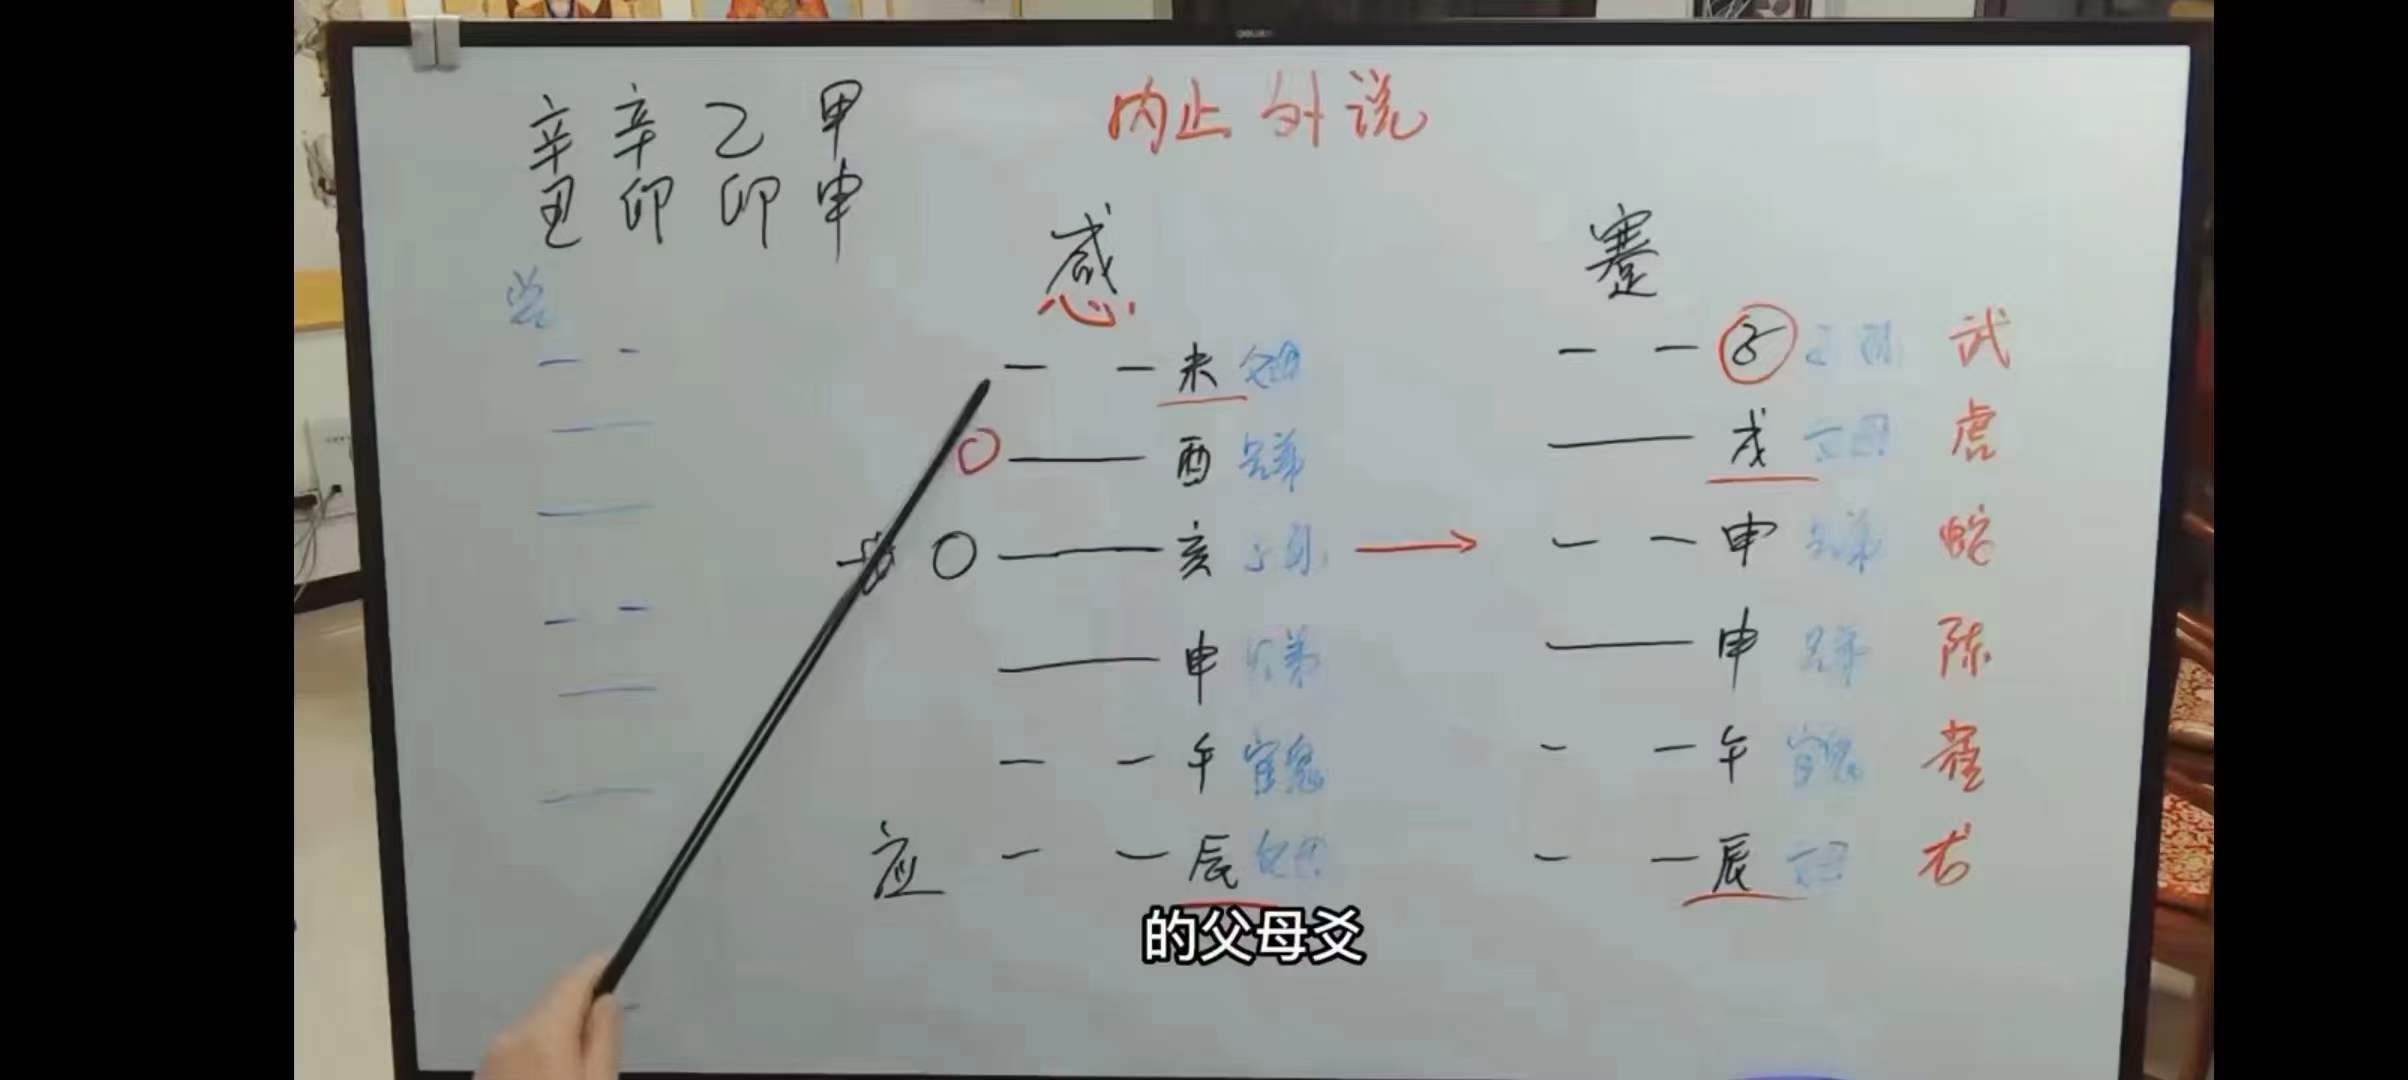 辛 辛 乙 甲
丑 卯 卯 申
内止外说
咸
心
蹇
未 父母
子 子孙 武
酉 兄弟
戌 父母 虎
世
亥 子孙
申 兄弟 蛇
申 兄弟
申 兄弟 陈
午 官鬼
午 官鬼 雀
应
辰 父母
辰 父母 龙
的父母爻